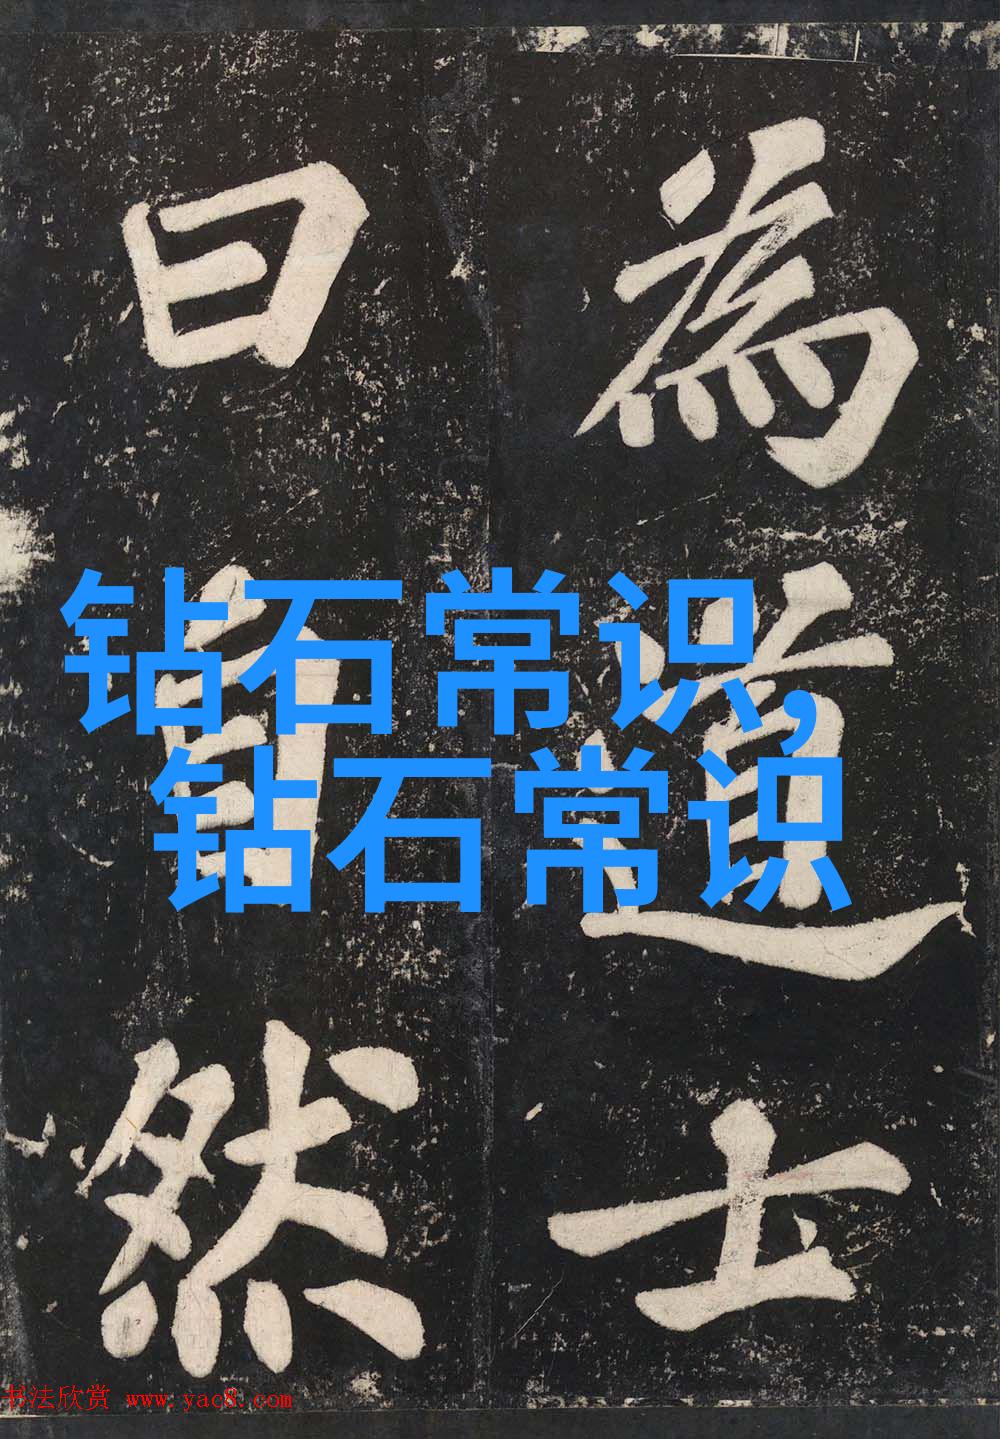 為道士
曰自然
钻石常识,
钻石常识
书法欣赏 www.yac8.com